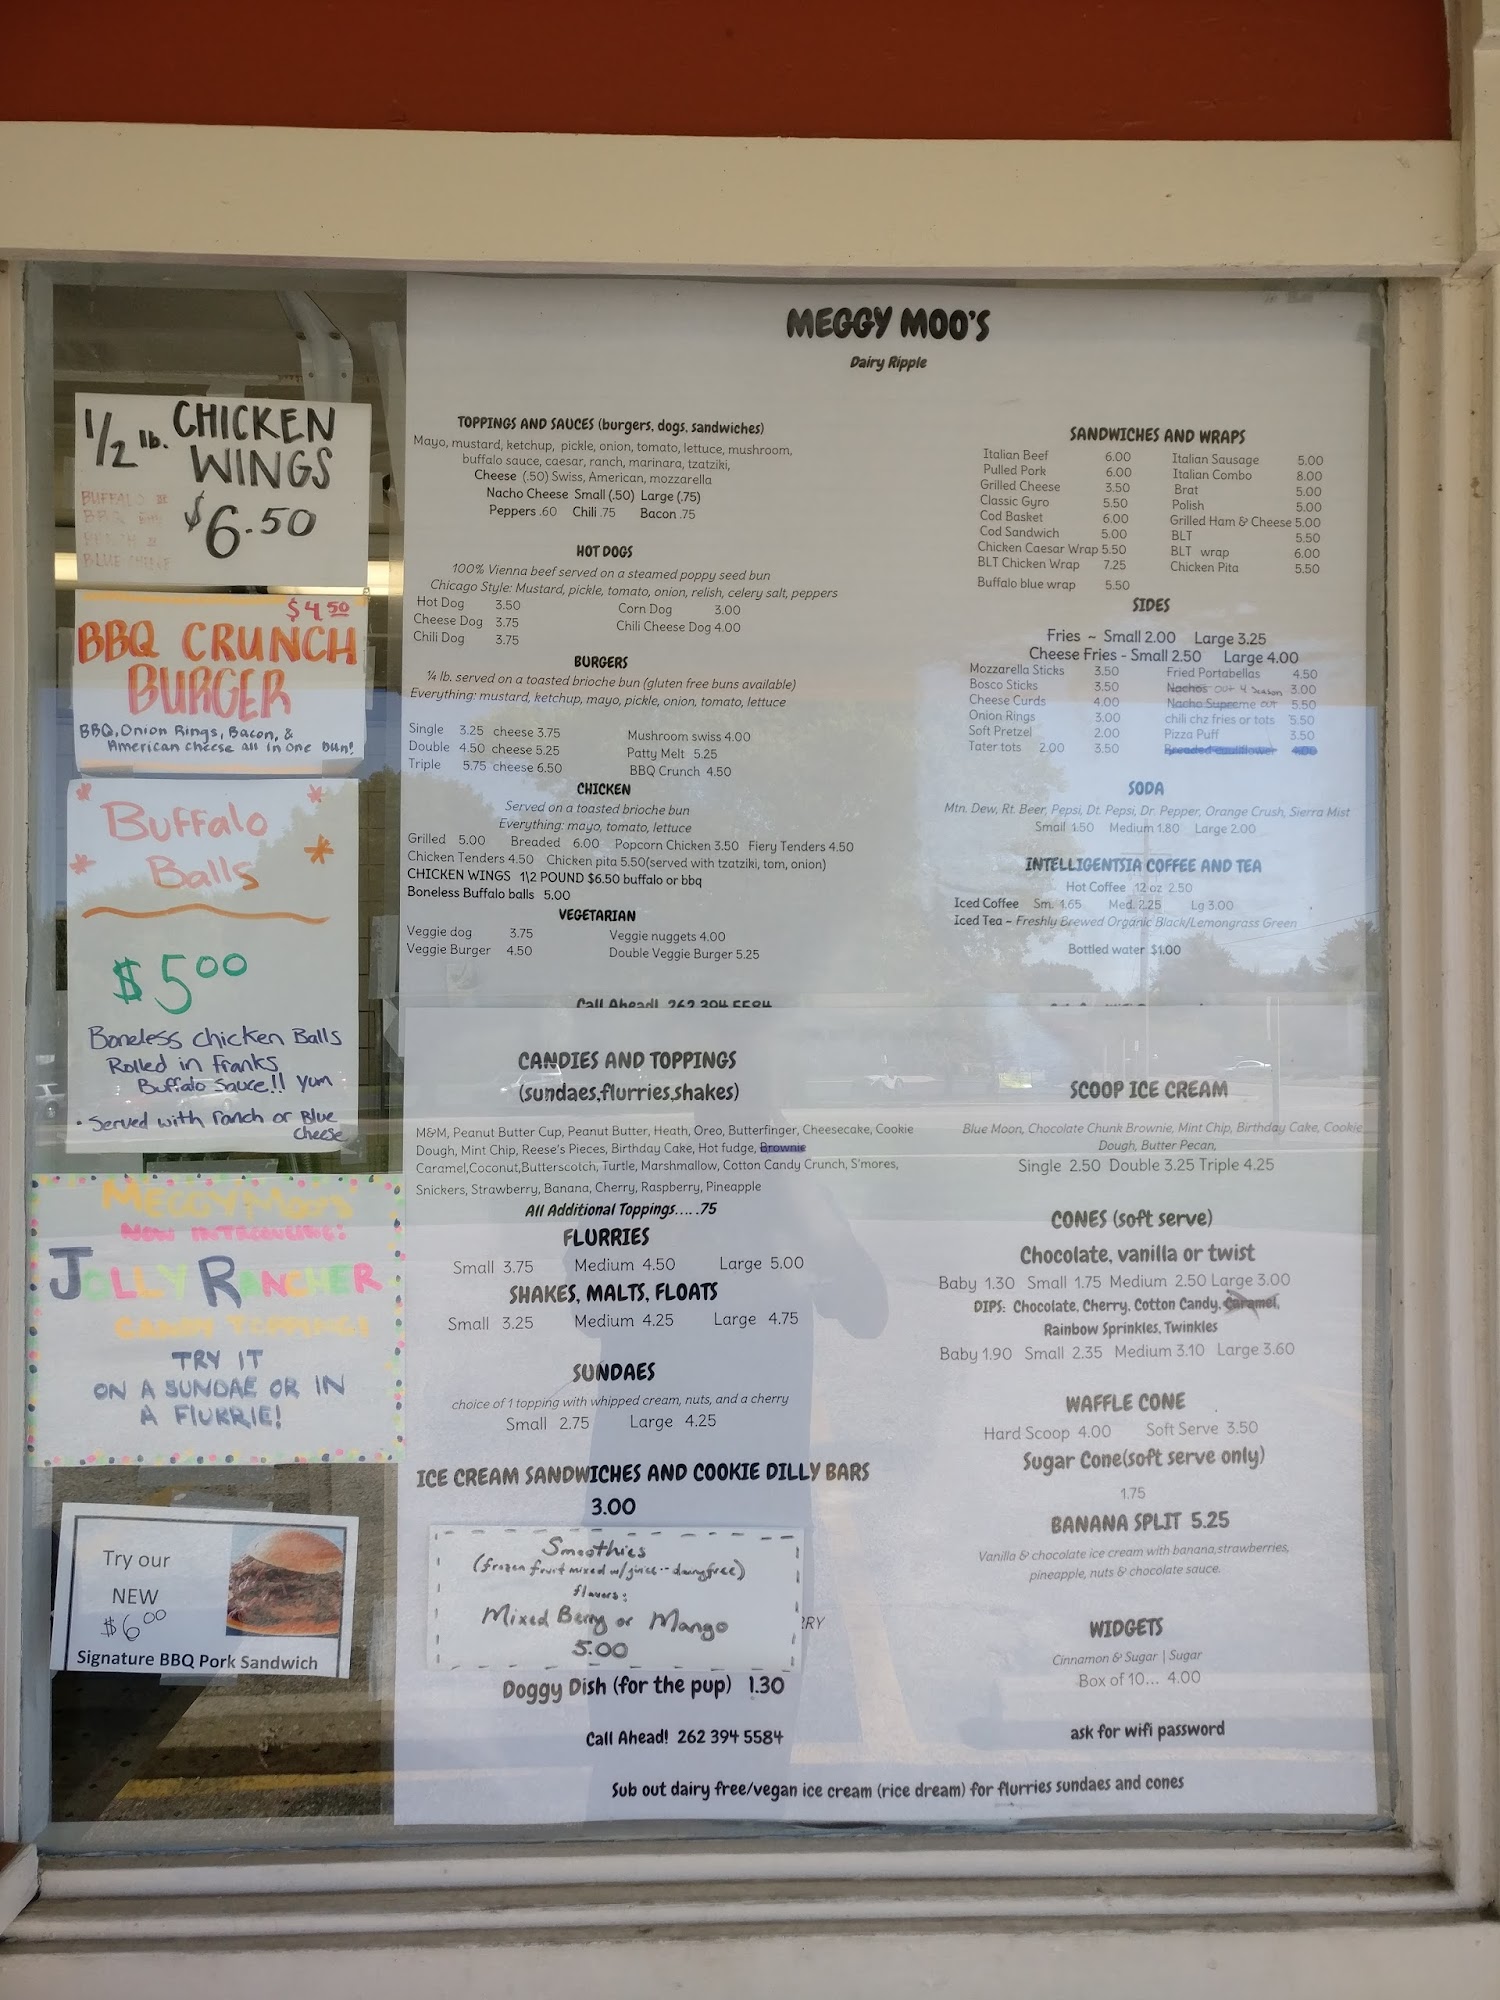 1/2 lb. CHICKEN
WINGS
$6.50
BUFFALO
BBQ
RANCH
BLUE CHEESE
$4.50
BBQ CRUNCH
BURGER
BBQ, Onion Rings, Bacon, &
American cheese all in one bun!
Buffalo
Balls
$5.00
Boneless Chicken Balls
Rolled in Franks
Buffalo Sauce!! yum
• Served with ranch or Blue
cheese
MEGGY MOO'S
NOW INTRODUCING:
JOLLY RANCHER
CANDY TOPPINGS
TRY IT
ON A SUNDAE OR IN
A FLURRIE!
Try our
NEW
$6.00
Signature BBQ Pork Sandwich
MEGGY MOO'S
Dairy Ripple
TOPPINGS AND SAUCES (burgers, dogs, sandwiches)
Mayo, mustard, ketchup, pickle, onion, tomato, lettuce, mushroom,
buffalo sauce, caesar, ranch, marinara, tzatziki,
Cheese (.50) Swiss, American, mozzarella
Nacho Cheese Small (.50) Large (.75)
Peppers .60 Chili .75 Bacon .75
HOT DOGS
100% Vienna beef served on a steamed poppy seed bun
Chicago Style: Mustard, pickle, tomato, onion, relish, celery salt, peppers
Hot Dog 3.50 Corn Dog 3.00
Cheese Dog 3.75 Chili Cheese Dog 4.00
Chili Dog 3.75
BURGERS
¼ lb. served on a toasted brioche bun (gluten free buns available)
Everything: mustard, ketchup, mayo, pickle, onion, tomato, lettuce
Single 3.25 cheese 3.75 Mushroom swiss 4.00
Double 4.50 cheese 5.25 Patty Melt 5.25
Triple 5.75 cheese 6.50 BBQ Crunch 4.50
CHICKEN
Served on a toasted brioche bun
Everything: mayo, tomato, lettuce
Grilled 5.00 Breaded 6.00 Popcorn Chicken 3.50 Fiery Tenders 4.50
Chicken Tenders 4.50 Chicken pita 5.50(served with tzatziki, tom, onion)
CHICKEN WINGS 1\2 POUND $6.50 buffalo or bbq
Boneless Buffalo balls 5.00
VEGETARIAN
Veggie dog 3.75 Veggie nuggets 4.00
Veggie Burger 4.50 Double Veggie Burger 5.25
Call Ahead! 262 394 5584
SANDWICHES AND WRAPS
Italian Beef 6.00 Italian Sausage 5.00
Pulled Pork 6.00 Italian Combo 8.00
Grilled Cheese 3.50 Brat 5.00
Classic Gyro 5.50 Polish 5.00
Cod Basket 6.00 Grilled Ham & Cheese 5.00
Cod Sandwich 5.00 BLT 5.50
Chicken Caesar Wrap 5.50 BLT wrap 6.00
BLT Chicken Wrap 7.25 Chicken Pita 5.50
Buffalo blue wrap 5.50
SIDES
Fries ~ Small 2.00 Large 3.25
Cheese Fries - Small 2.50 Large 4.00
Mozzarella Sticks 3.50 Fried Portabellas 4.50
Bosco Sticks 3.50 Nachos OUT 4 Season 3.00
Cheese Curds 4.00 Nacho Supreme OUT 5.50
Onion Rings 3.00 chili chz fries or tots 5.50
Soft Pretzel 2.00 Pizza Puff 3.50
Tater tots 2.00 3.50 Breaded cauliflower 4.00
SODA
Mtn. Dew, Rt. Beer, Pepsi, Dt. Pepsi, Dr. Pepper, Orange Crush, Sierra Mist
Small 1.50 Medium 1.80 Large 2.00
INTELLIGENTSIA COFFEE AND TEA
Hot Coffee 12 oz 2.50
Iced Coffee Sm. 1.65 Med. 2.25 Lg 3.00
Iced Tea ~ Freshly Brewed Organic Black/Lemongrass Green
Bottled water $1.00
CANDIES AND TOPPINGS
(sundaes,flurries,shakes)
M&M, Peanut Butter Cup, Peanut Butter, Heath, Oreo, Butterfinger, Cheesecake, Cookie
Dough, Mint Chip, Reese's Pieces, Birthday Cake, Hot fudge, Brownie
Caramel,Coconut,Butterscotch, Turtle, Marshmallow, Cotton Candy Crunch, S'mores,
Snickers, Strawberry, Banana, Cherry, Raspberry, Pineapple
All Additional Toppings.....75
FLURRIES
Small 3.75 Medium 4.50 Large 5.00
SHAKES, MALTS, FLOATS
Small 3.25 Medium 4.25 Large 4.75
SUNDAES
choice of 1 topping with whipped cream, nuts, and a cherry
Small 2.75 Large 4.25
ICE CREAM SANDWICHES AND COOKIE DILLY BARS
3.00
Smoothies
(frozen fruit mixed w/juice -- dairy free)
flavors:
Mixed Berry or Mango
5.00
RRY
Doggy Dish (for the pup) 1.30
Call Ahead! 262 394 5584
SCOOP ICE CREAM
Blue Moon, Chocolate Chunk Brownie, Mint Chip, Birthday Cake, Cookie
Dough, Butter Pecan,
Single 2.50 Double 3.25 Triple 4.25
CONES (soft serve)
Chocolate, vanilla or twist
Baby 1.30 Small 1.75 Medium 2.50 Large 3.00
DIPS: Chocolate, Cherry, Cotton Candy, Caramel,
Rainbow Sprinkles, Twinkles
Baby 1.90 Small 2.35 Medium 3.10 Large 3.60
WAFFLE CONE
Hard Scoop 4.00 Soft Serve 3.50
Sugar Cone(soft serve only)
1.75
BANANA SPLIT 5.25
Vanilla & chocolate ice cream with banana,strawberries,
pineapple, nuts & chocolate sauce.
WIDGETS
Cinnamon & Sugar | Sugar
Box of 10... 4.00
ask for wifi password
Sub out dairy free/vegan ice cream (rice dream) for flurries sundaes and cones